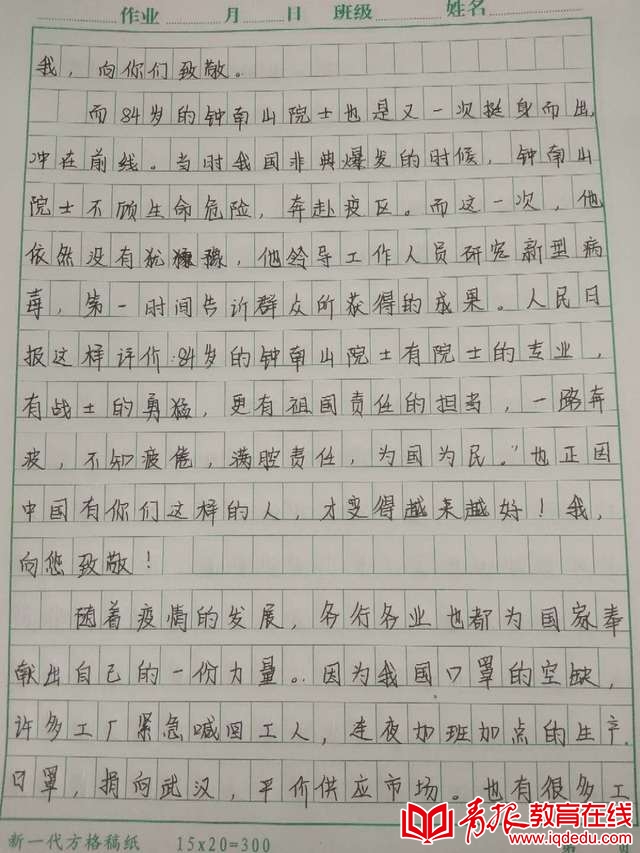 作业 月 日 班级 姓名
我，向你们致敬。
而84岁的钟南山院士也是又一次挺身而出，
冲在前线。当时我国非典爆发的时候，钟南山
院士不顾生命危险，奔赴疫区。而这一次，他
依然没有犹豫，他领导工作人员研究新型病
毒，第一时间告诉群众所获得的成果。人民日
报这样评价:84岁的钟南山院士有院士的专业，
有战士的勇猛，更有祖国责任的担当，一路奔
波，不知疲倦，满腔责任，为国为民。”也正因
中国有你们这样的人，才变得越来越好！我，
向您致敬！
随着疫情的发展，各行各业也都为国家奉
献出自己的一份力量。因为我国口罩的空缺，
许多工厂紧急喊回工人，连夜加班加点的生产
口罩，捐向武汉，平价供应市场。也有很多工
新一代方格稿纸 15x20=300
青报教育在线
www.iqdedu.com